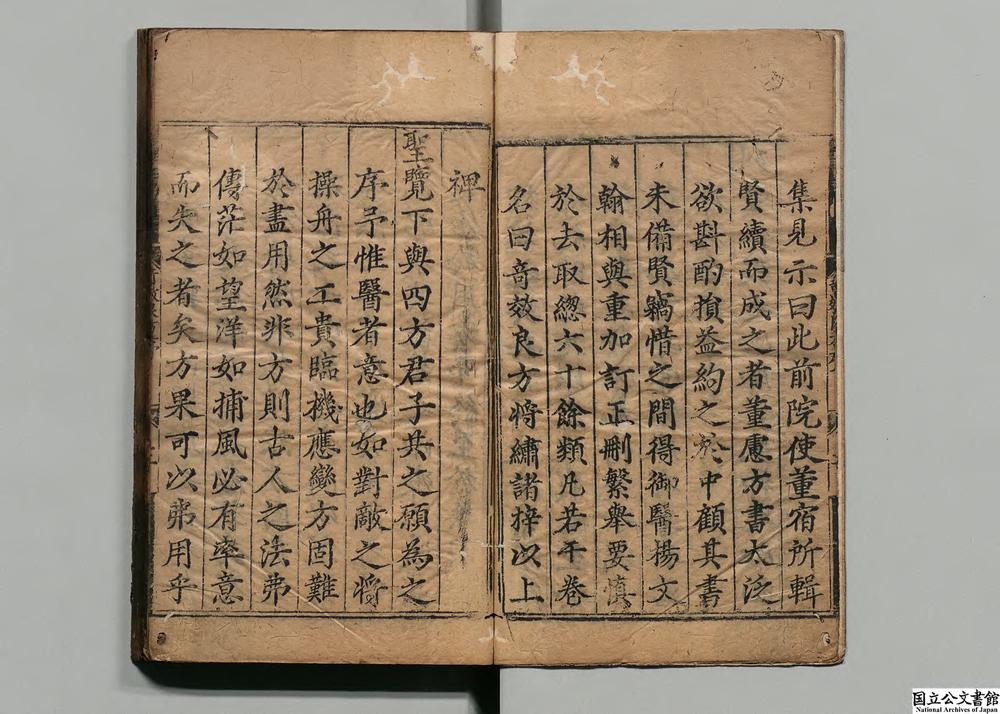 集見示曰此前院使董宿所輯
賢續而成之者董慮方書太泛
欲斟酌損益約之於中顧其書
未備賢竊惜之間得御醫楊文
翰相與重加訂正刪繁舉要慎
於去取緫六十餘類凡若干卷
名曰竒效良方將繡諸梓以上
裨
聖覽下與四方君子共之願為之
序予惟醫者意也如對敵之將
操舟之工貴臨機應變方固難
於盡用然非方則古人之法弗
傳茫如望洋如捕風必有率意
而失之者矣方果可以弗用乎
国立公文書館
National Archives of Japan